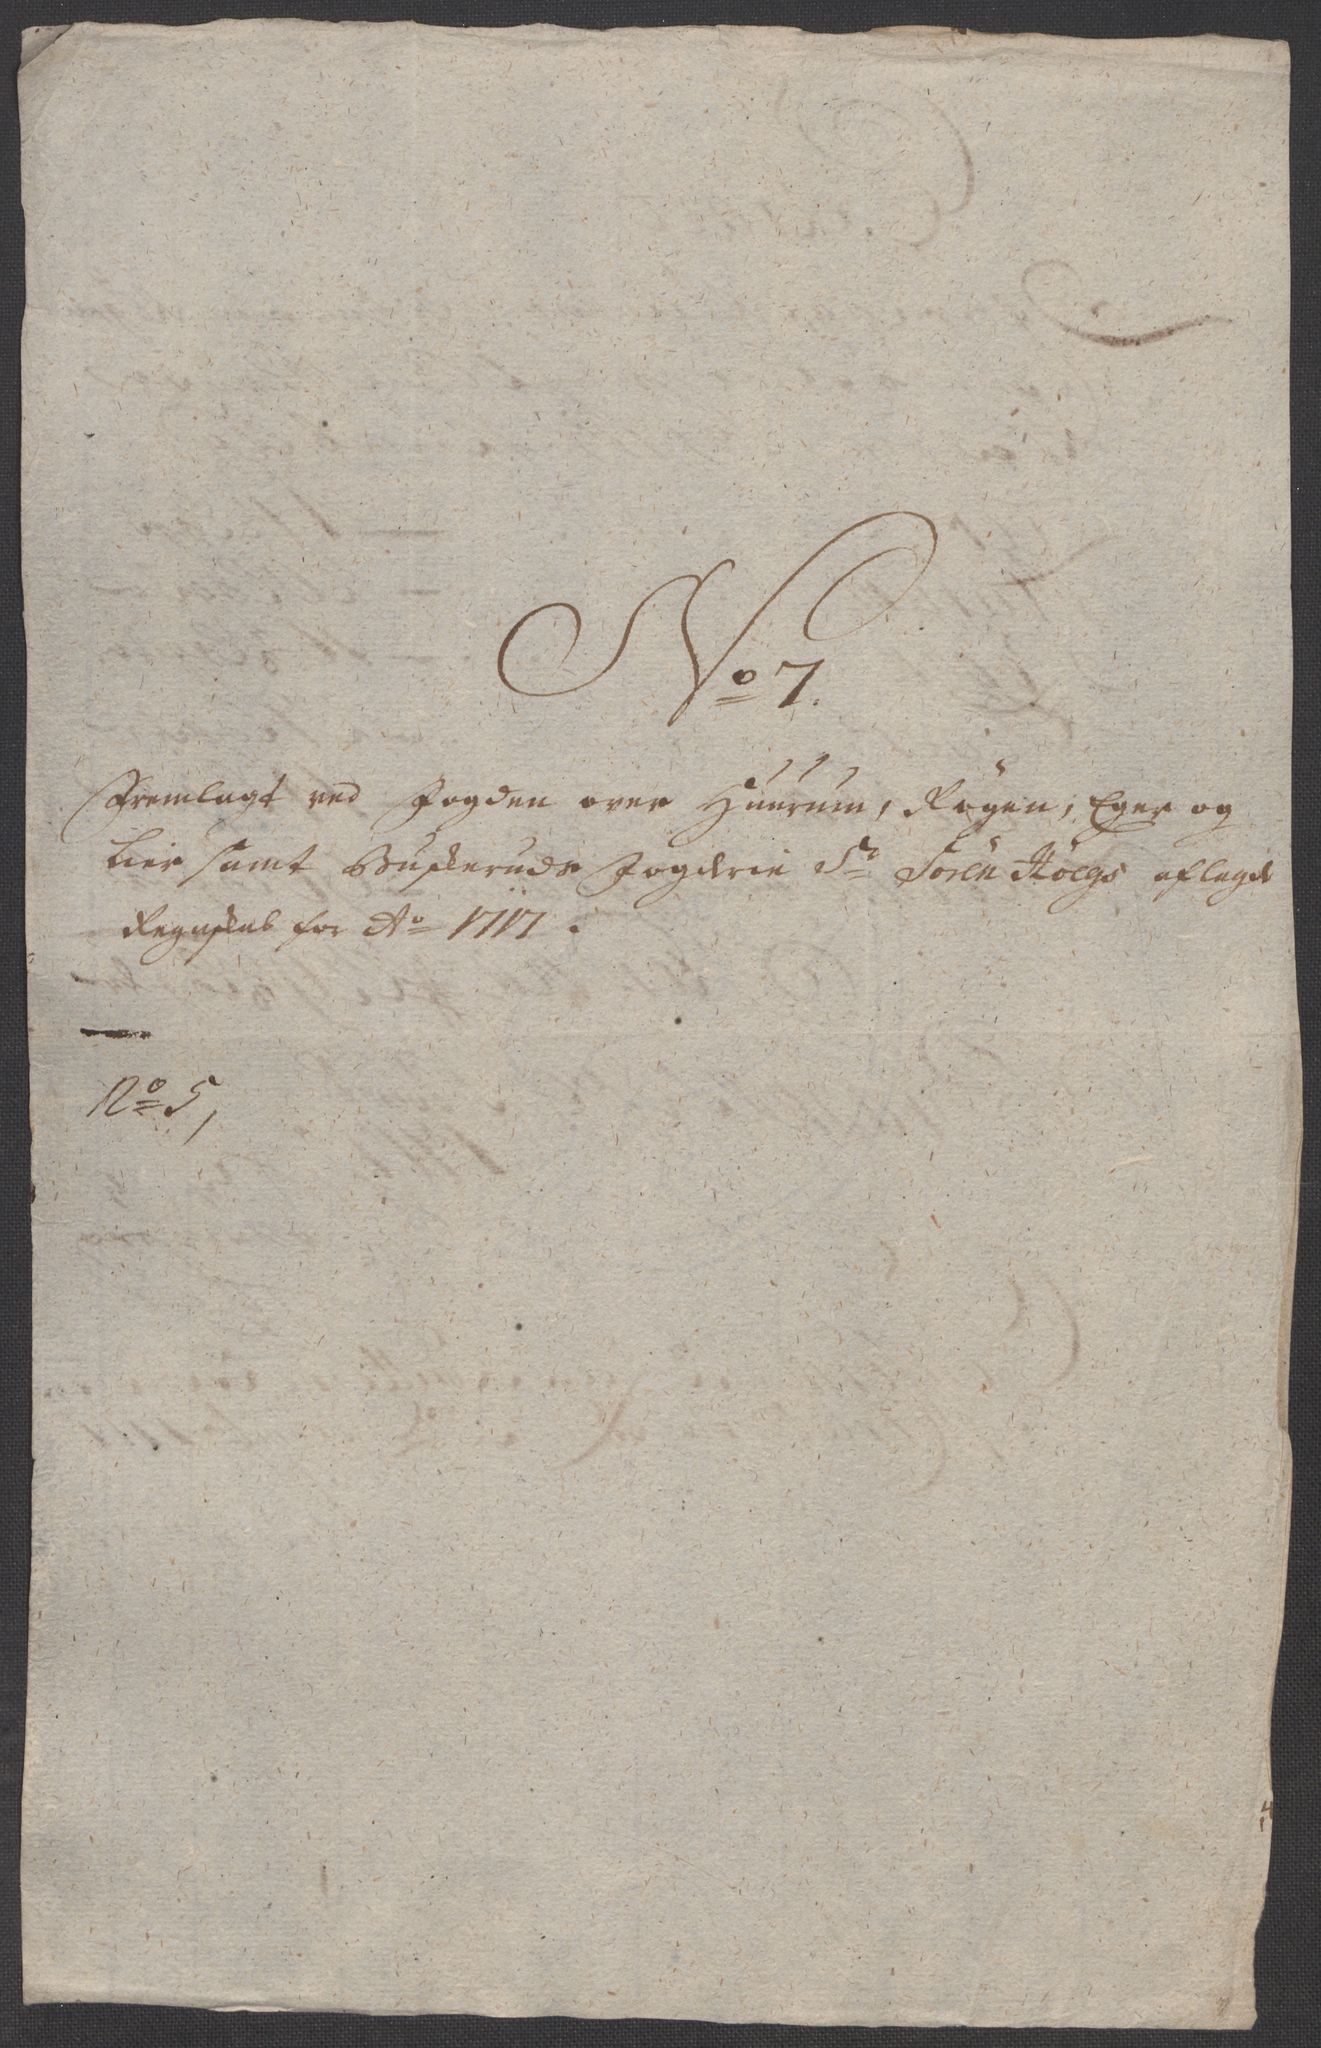 No 7.
Fremlagt ved Fogden over Huurum, Røgen, Eger og
Lier samt Buskeruds Fogderie Sr Søren Høegs aflagde
Regnskab for Ao 1717.
No 5,